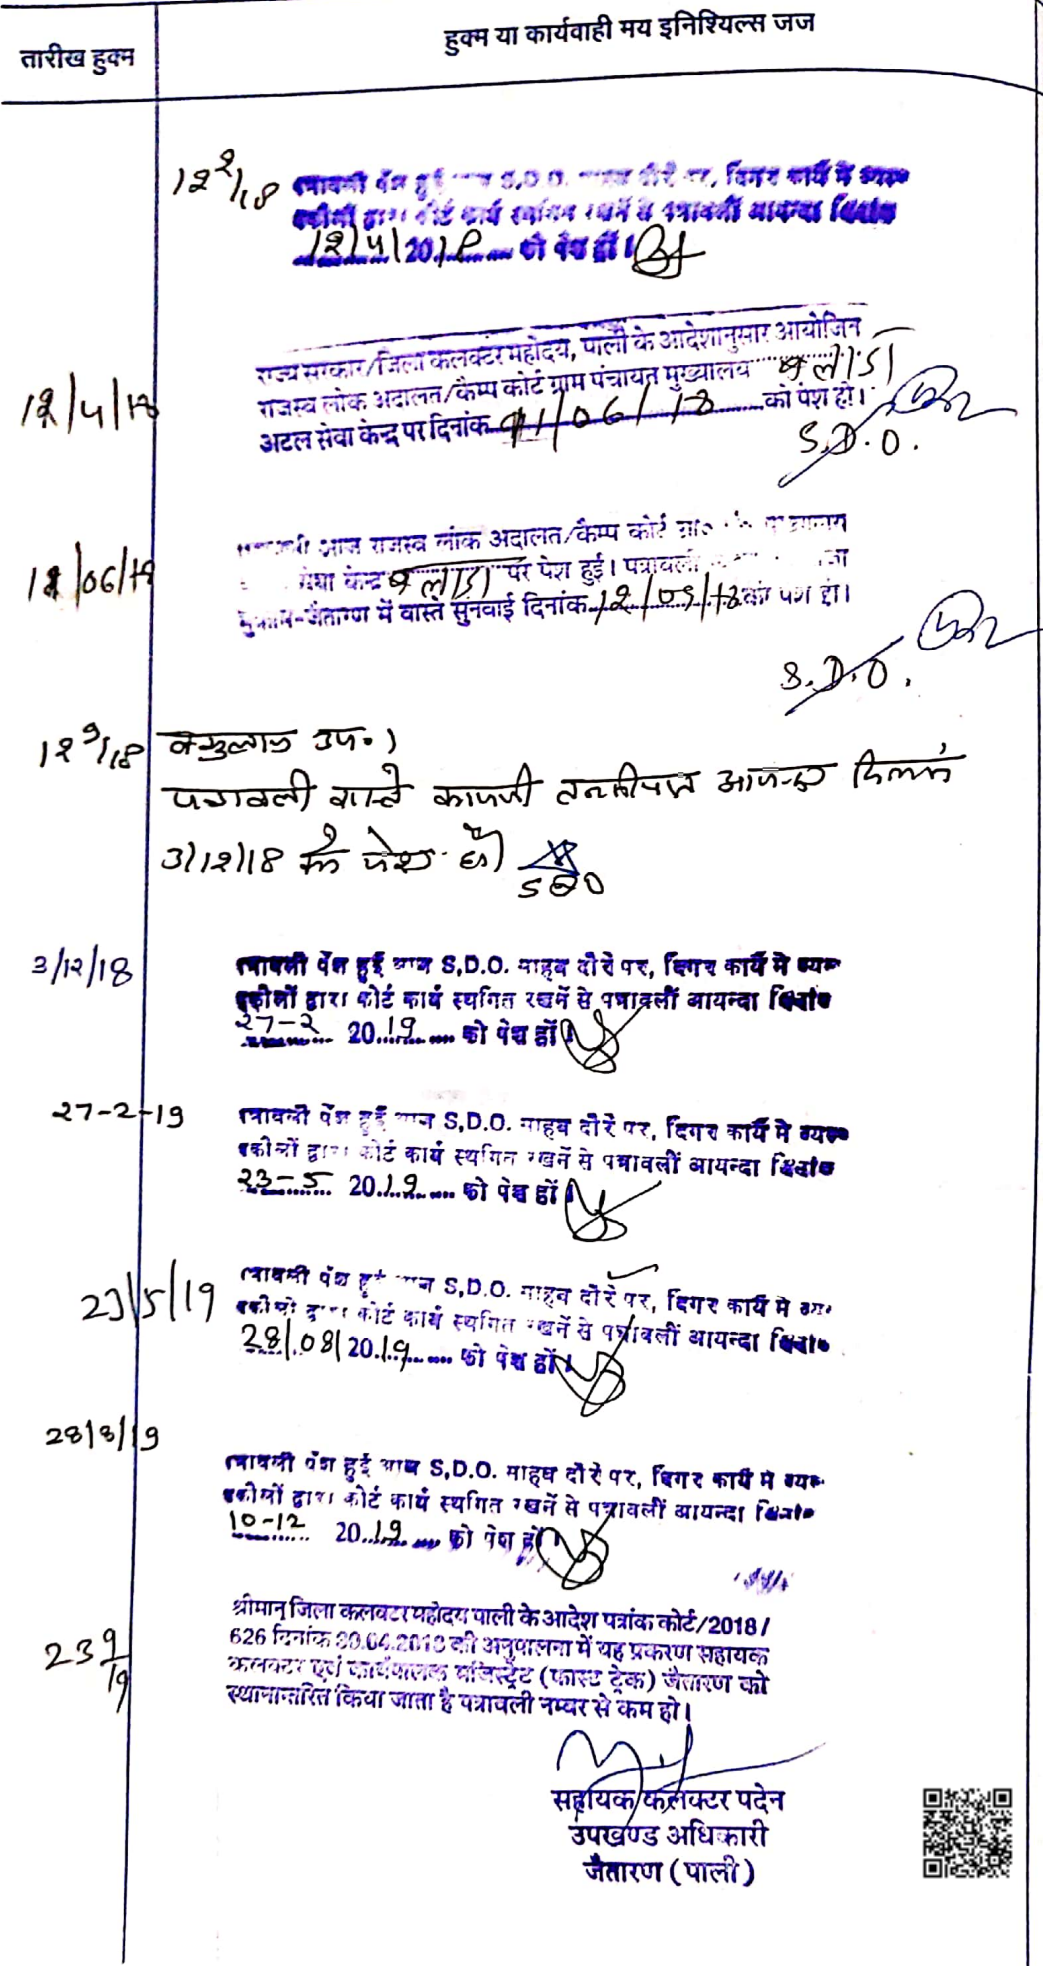 तारीख हुक्म
हुक्म या कार्यवाही मय इनिश्यिल्स जज
12 2/18
पत्रावली पेश हुई S.D.O. दौरे पर, दिगर कार्य मे व्यस्त
वकीलों द्वारा कोर्ट कार्य स्थगित रखनें से पत्रावलीं आयन्दा दिनांक
12/4/2018 को पेश हों।
12/4/18
राज्य सरकार/जिला कलक्टर महोदय, पाली के आदेशानुसार आयोजित
राजस्व लोक अदालत/कैम्प कोर्ट ग्राम पंचायत मुख्यालय
अटल सेवा केन्द्र पर दिनांक 11/06/18 को पेश हो।
S.D.O.
/06/18
आज राजस्व लोक अदालत/कैम्प कोर्ट
केन्द्र पर पेश हुई। पत्रावली
मुकाम-जैतारण में वास्ते सुनवाई दिनांक 12/09/18 को पेश हो।
S.D.O.
12 9/18
उप.।
पत्रावली वास्ते
3/12/18 को पेश हो।
SDO
3/12/18
पत्रावली पेश हुई आज S.D.O. साहब दौरे पर, दिगर कार्य मे व्यस्त
वकीलों द्वारा कोर्ट कार्य स्थगित रखनें से पत्रावलीं आयन्दा दिनांक
27-2 2019 को पेश हों।
27-2-19
पत्रावली पेश हुई आज S.D.O. साहब दौरे पर, दिगर कार्य मे व्यस्त
वकीलों द्वारा कोर्ट कार्य स्थगित रखनें से पत्रावलीं आयन्दा दिनांक
23-5 2019 को पेश हों।
23/5/19
पत्रावली पेश हुई आज S.D.O. साहब दौरे पर, दिगर कार्य मे व्यस्त
वकीलों द्वारा कोर्ट कार्य स्थगित रखनें से पत्रावलीं आयन्दा दिनांक
28/08/2019 को पेश हों।
28/8/19
पत्रावली पेश हुई आज S.D.O. साहब दौरे पर, दिगर कार्य मे व्यस्त
वकीलों द्वारा कोर्ट कार्य स्थगित रखनें से पत्रावलीं आयन्दा दिनांक
10-12 2019 को पेश हों।
23 9/19
श्रीमान् जिला कलक्टर महोदय पाली के आदेश पत्रांक कोर्ट/2018/
626 दिनांक 30.04.2018 की अनुपालना में यह प्रकरण सहायक
कलक्टर एवं कार्यपालक मजिस्ट्रेट (फास्ट ट्रेक) जैतारण को
स्थानान्तरित किया जाता है पत्रावली नम्बर से कम हो।
सहायक कलक्टर पदेन
उपखण्ड अधिकारी
जैतारण (पाली)